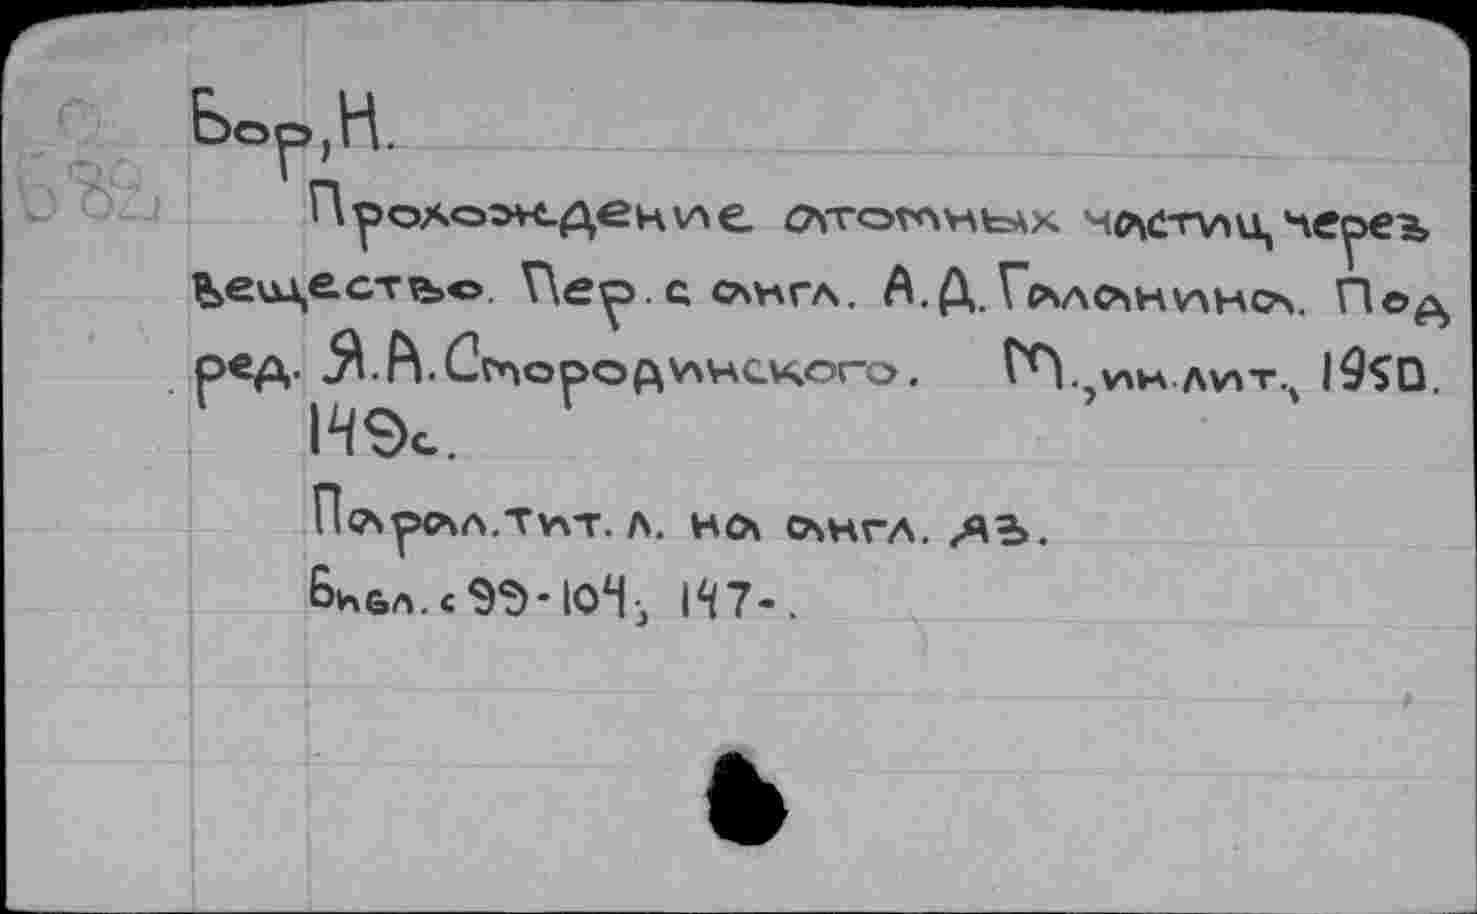 Бор, Н.
Прохождение атомных частиц через
вещество. Пер. с англ. А.Д. Галанина. Под
ред. Я.А. Смородинского. М., ин. лит., 1950.
149 с.
Парал. тит. л. на англ. яз.
Библ. с 99-104, 147-.